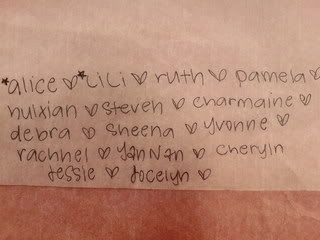 *alice ♡ *Lili ♡ ruth ♡ pamela ♡
huixian ♡ steven ♡ charmaine ♡
debra ♡ sheena ♡ yvonne ♡
rachhel ♡ YanNan ♡ cheryln
Jessie ♡ Jocelyn ♡